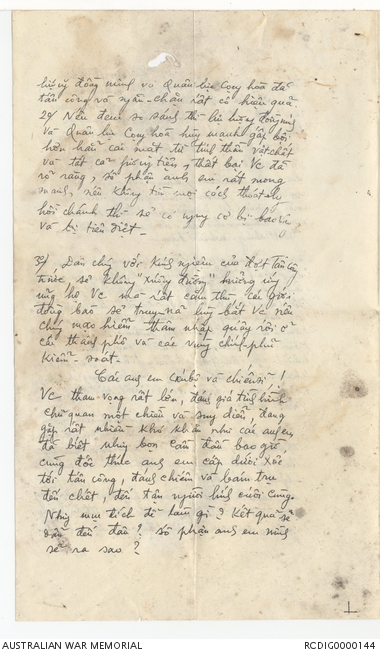 lượng đồng minh và Quân lực Cộng hòa đã
tấn công và ngăn-chặn rất có hiệu quả.
2%) Nếu đem so sánh thì lực lượng đồng minh
và Quân lực Cộng hòa hùng mạnh gấp bội
hơn hẳn các mặt từ tinh thần vật-chất
và tất cả phương tiện, thất bại VC đã
rõ ràng, số phận anh em rất mong
manh, nếu không tìm cách thoát ly
hồi chánh thì sẽ có nguy cơ bị bao vây
và bị tiêu diệt.-
3%) Dân chúng với kinh nghiệm của đợt tấn công
trước sẽ không "xuống đường" hưởng ứng
ủng hộ VC mà rất căm thù, các giới
đồng bào sẽ truy-nã lùng bắt VC nếu
chúng mạo hiểm thâm nhập quấy rối ở
các thành phố và các vùng chính-phủ
kiểm-soát.
Các anh em Cán bộ và chiến sĩ!
VC tham vọng rất lớn, đánh giá tình hình
chủ quan một chiều và suy diễn, đang
gặp rất nhiều khó khăn như các anh em
đã biết nhưng bọn cầm đầu bao giờ
cũng đốc thúc anh em cấp dưới xốc
tới tấn công, đánh chiếm và bám trụ
đến chết, đến tận người lính cuối cùng.
Nhằm mục đích để làm gì? Kết quả sẽ
dẫn đến đâu? số phận anh em mình
sẽ ra sao?
AUSTRALIAN WAR MEMORIAL RCDIG0000144